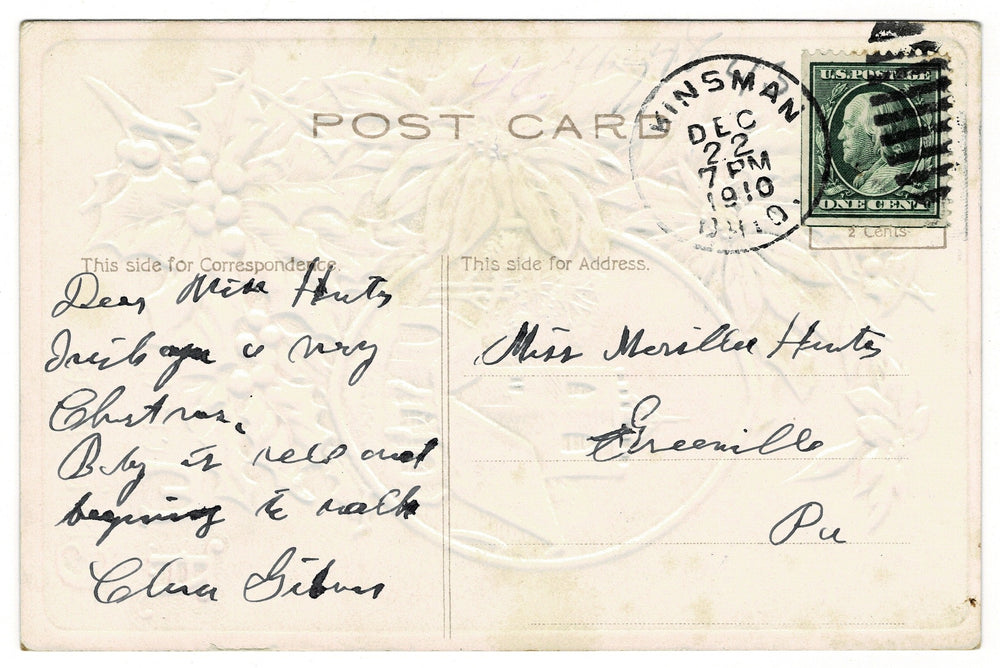 POST CARD
KINSMAN
DEC
22
7 PM
1910
OHIO.
U.S. POSTAGE
ONE CENT
2 Cents.
This side for Correspondence.
This side for Address.
Dear Miss Hunter
I wish you a mery
Christmas.
Baby is well and
begining to walk
Clara
Miss Merilla Hunter
Greenville
Pa